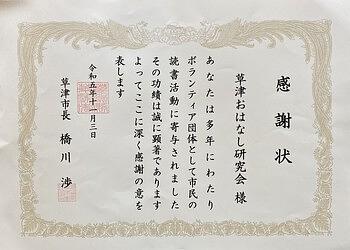 感謝状
草津おはなし研究会 様
あなたは多年にわたり
ボランティア団体として市民の
読書活動に寄与されました
その功績は誠に顕著であります
よってここに深く感謝の意を
表します
令和五年十一月三日
草津市長 橋川 渉